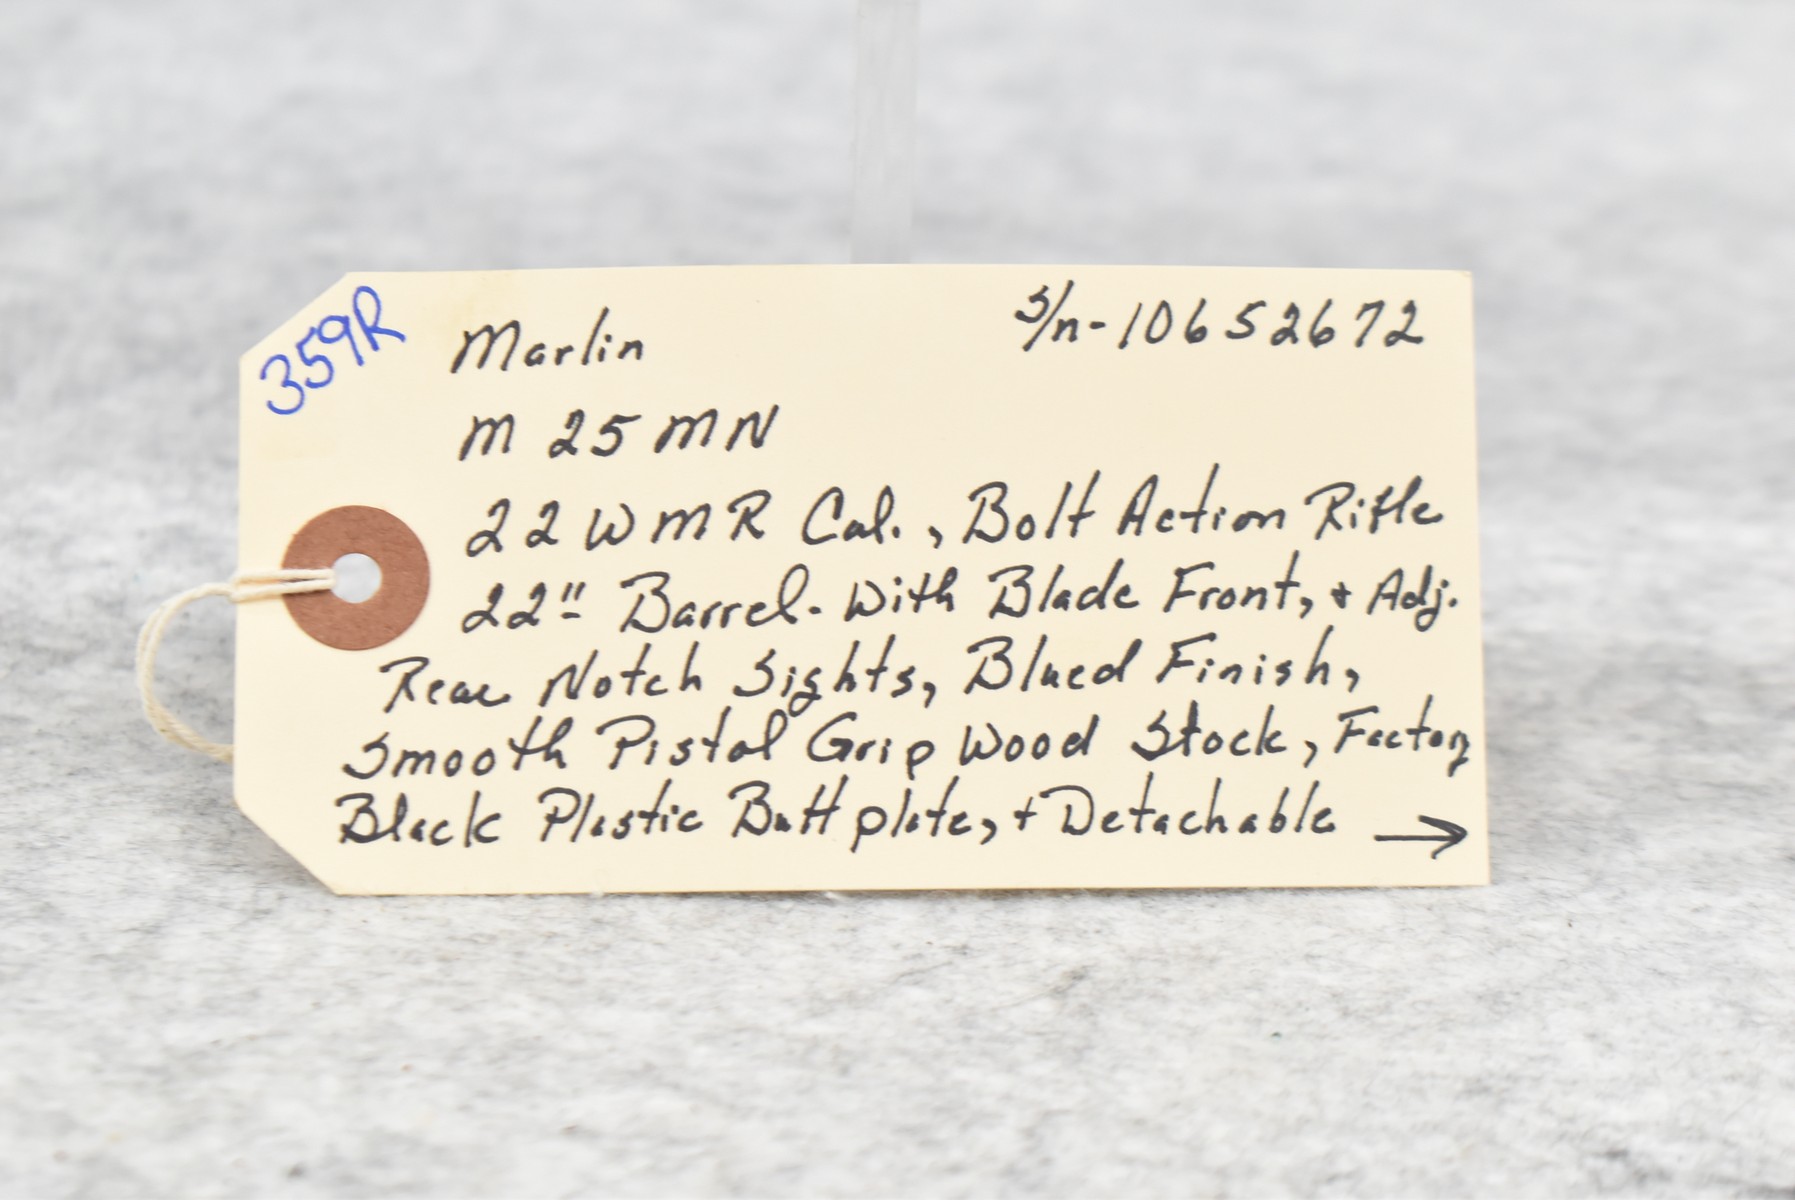 359R
Marlin s/n-10652672
M 25 MN
22 WMR Cal., Bolt Action Rifle
22" Barrel- With Blade Front, + Adj.
Rear Notch Sights, Blued Finish,
Smooth Pistol Grip Wood Stock, Factory
Black Plastic Butt plate, + Detachable →